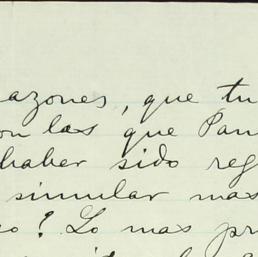 azones, que tu
on las que Pan
haber sido reg
simular mas
o? Lo mas pr